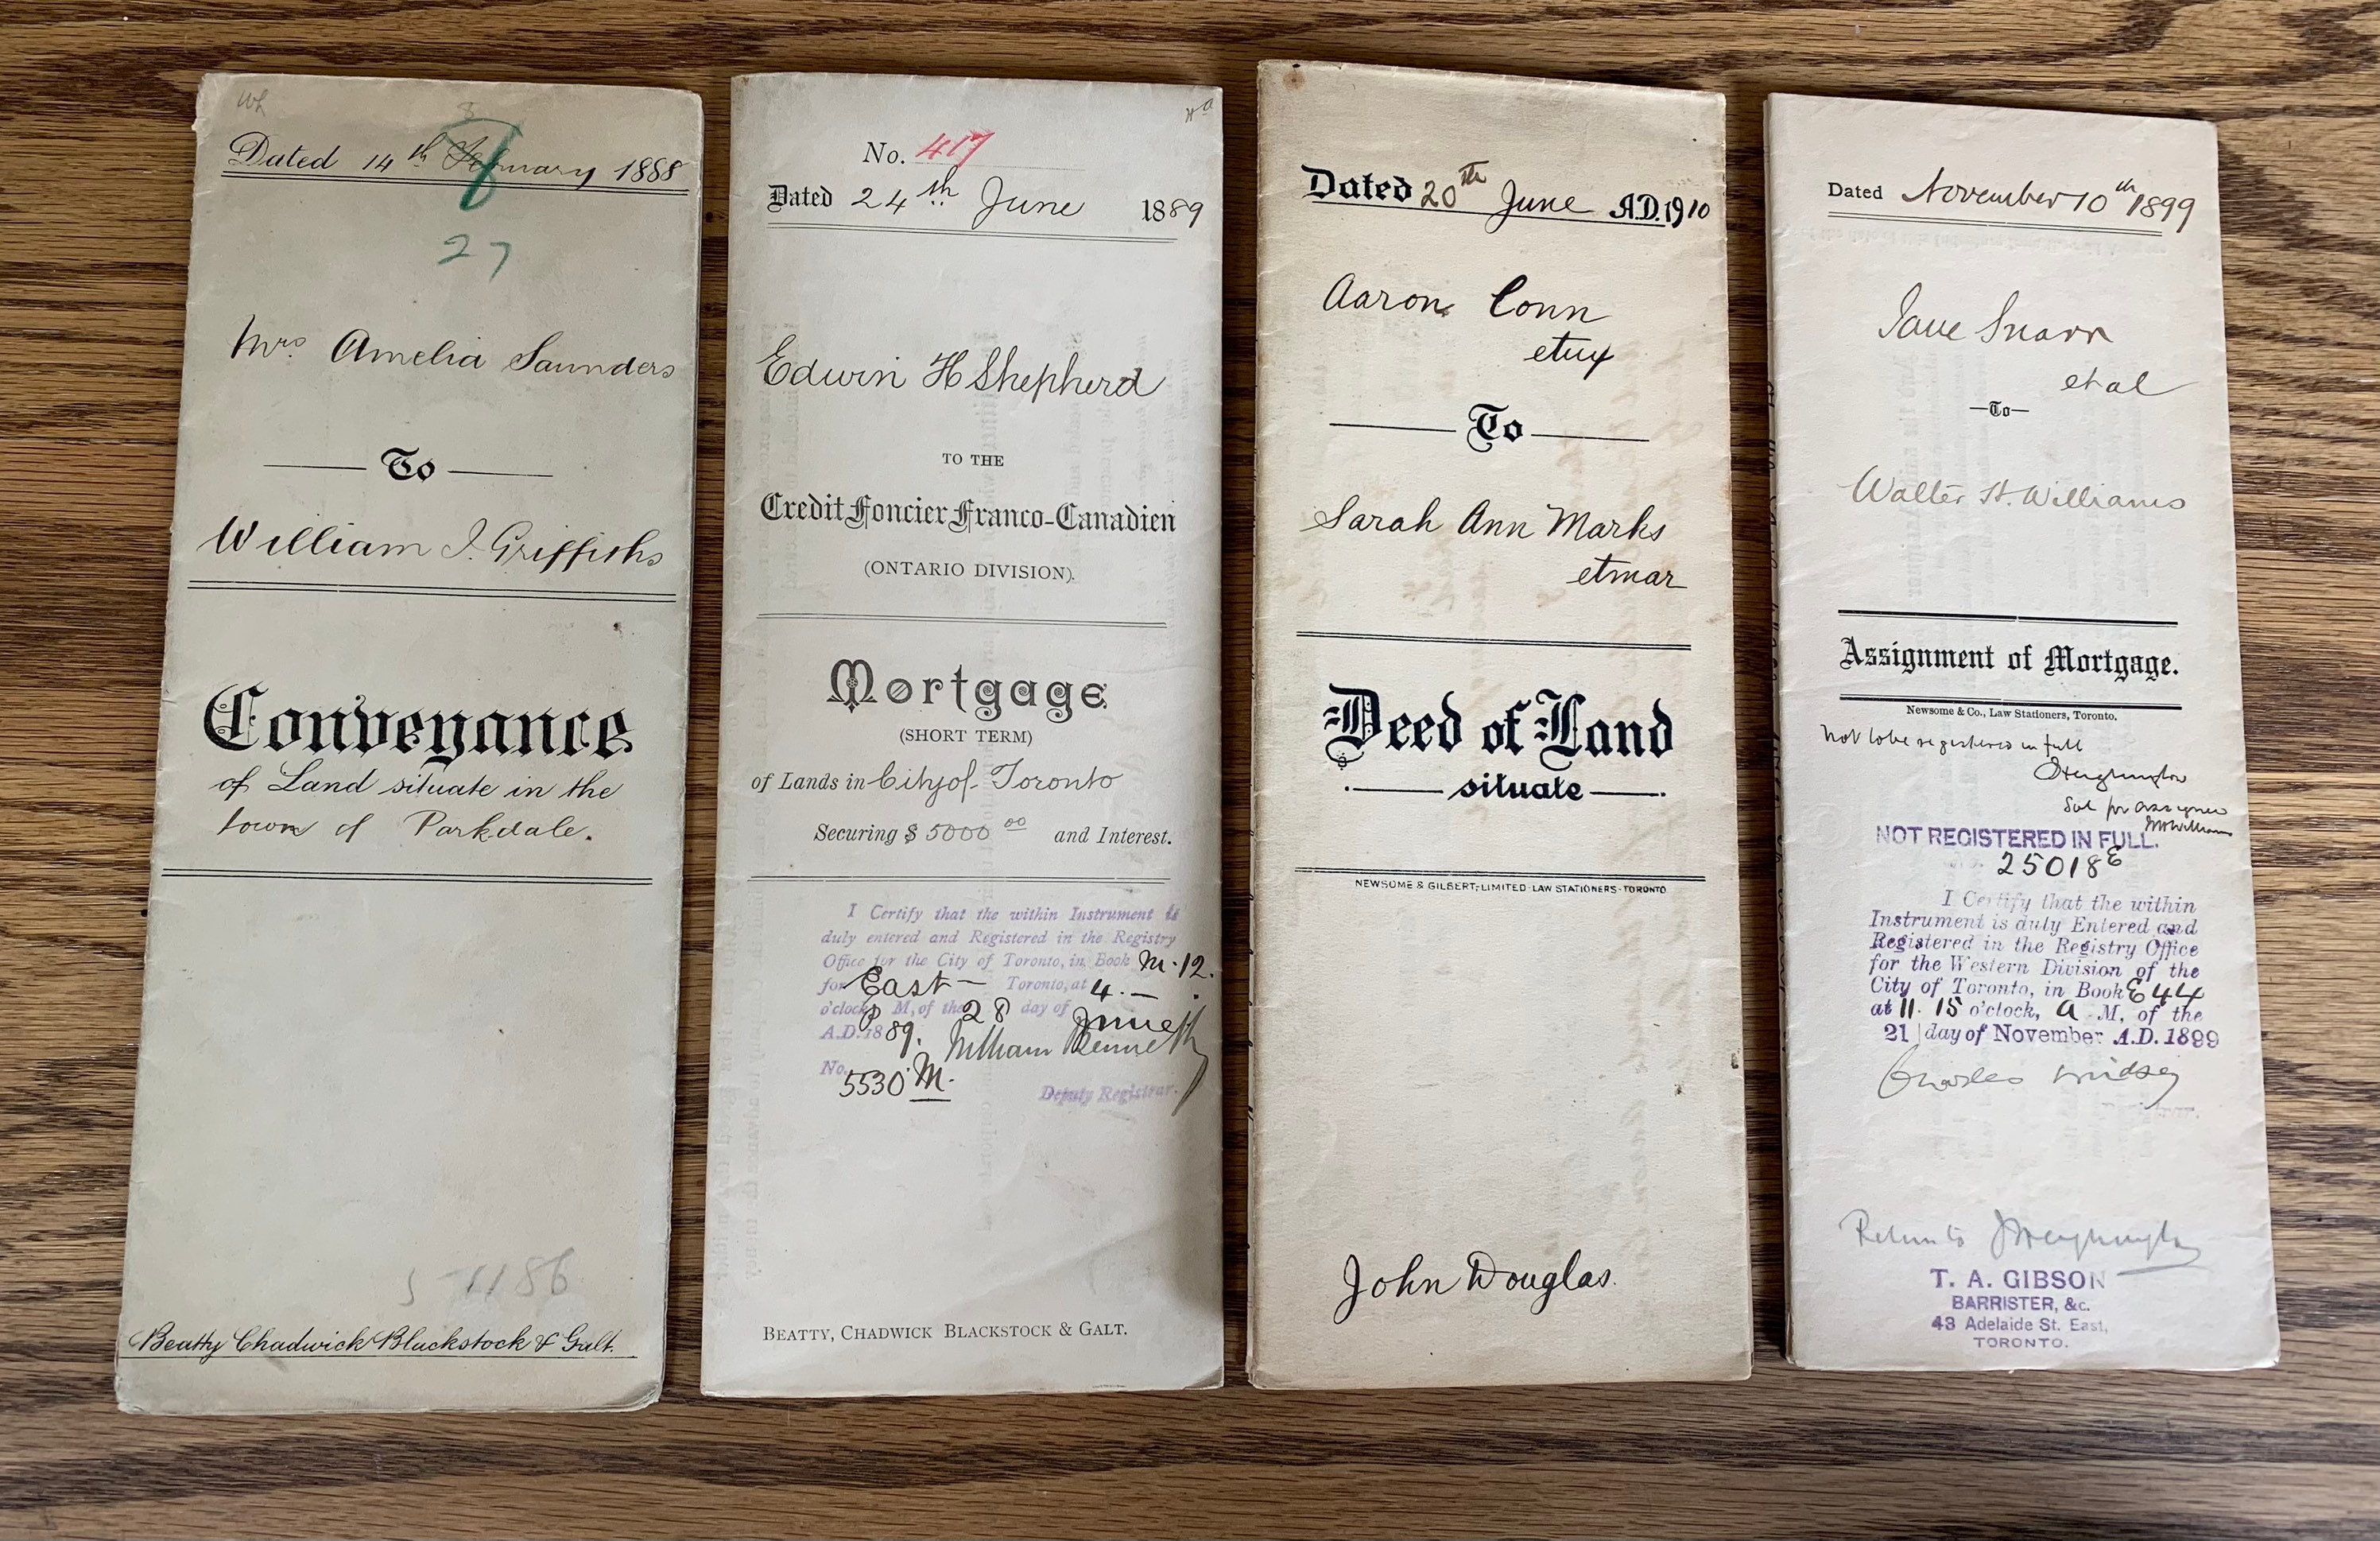 Wh
Dated 14th February 1888
27
Mrs. Amelia Saunders
To
William J. Griffiths
Conveyance
of Land situate in the
town of Parkdale.
1186
Beatty Chadwick Blackstock & Galt.
No. 417
Dated 24th June 1889
Edwin H Shepherd
TO THE
Credit Foncier Franco-Canadien
(ONTARIO DIVISION).
Mortgage
(SHORT TERM)
of Lands in City of Toronto
Securing $ 5000 00 and Interest.
I Certify that the within Instrument is
duly entered and Registered in the Registry
Office for the City of Toronto, in Book M. 12.
for East Toronto, at 4.
o'clock P M, of the 28 day of June
A.D. 1889. William Bennett
No. 5530 M.
Deputy Registrar.
BEATTY, CHADWICK BLACKSTOCK & GALT.
Dated 20th June A.D. 1910
Aaron Conn
etux
To
Sarah Ann Marks
etmar
Deed of Land
situate
NEWSOME & GILBERT, LIMITED LAW STATIONERS TORONTO
John Douglas.
Dated November 10th 1899
Jane Snarr
et al
To
Walter H. Williams
Assignment of Mortgage.
Newsome & Co., Law Stationers, Toronto.
Not to be registered in full
Sol for assignee
NOT REGISTERED IN FULL.
25018E
I Certify that the within
Instrument is duly Entered and
Registered in the Registry Office
for the Western Division of the
City of Toronto, in Book E 44
at 11. 15 o'clock, A. M, of the
21 day of November A.D. 1899
Charles Lindsey
Return to
T. A. GIBSON
BARRISTER, &c.
43 Adelaide St. East,
TORONTO.